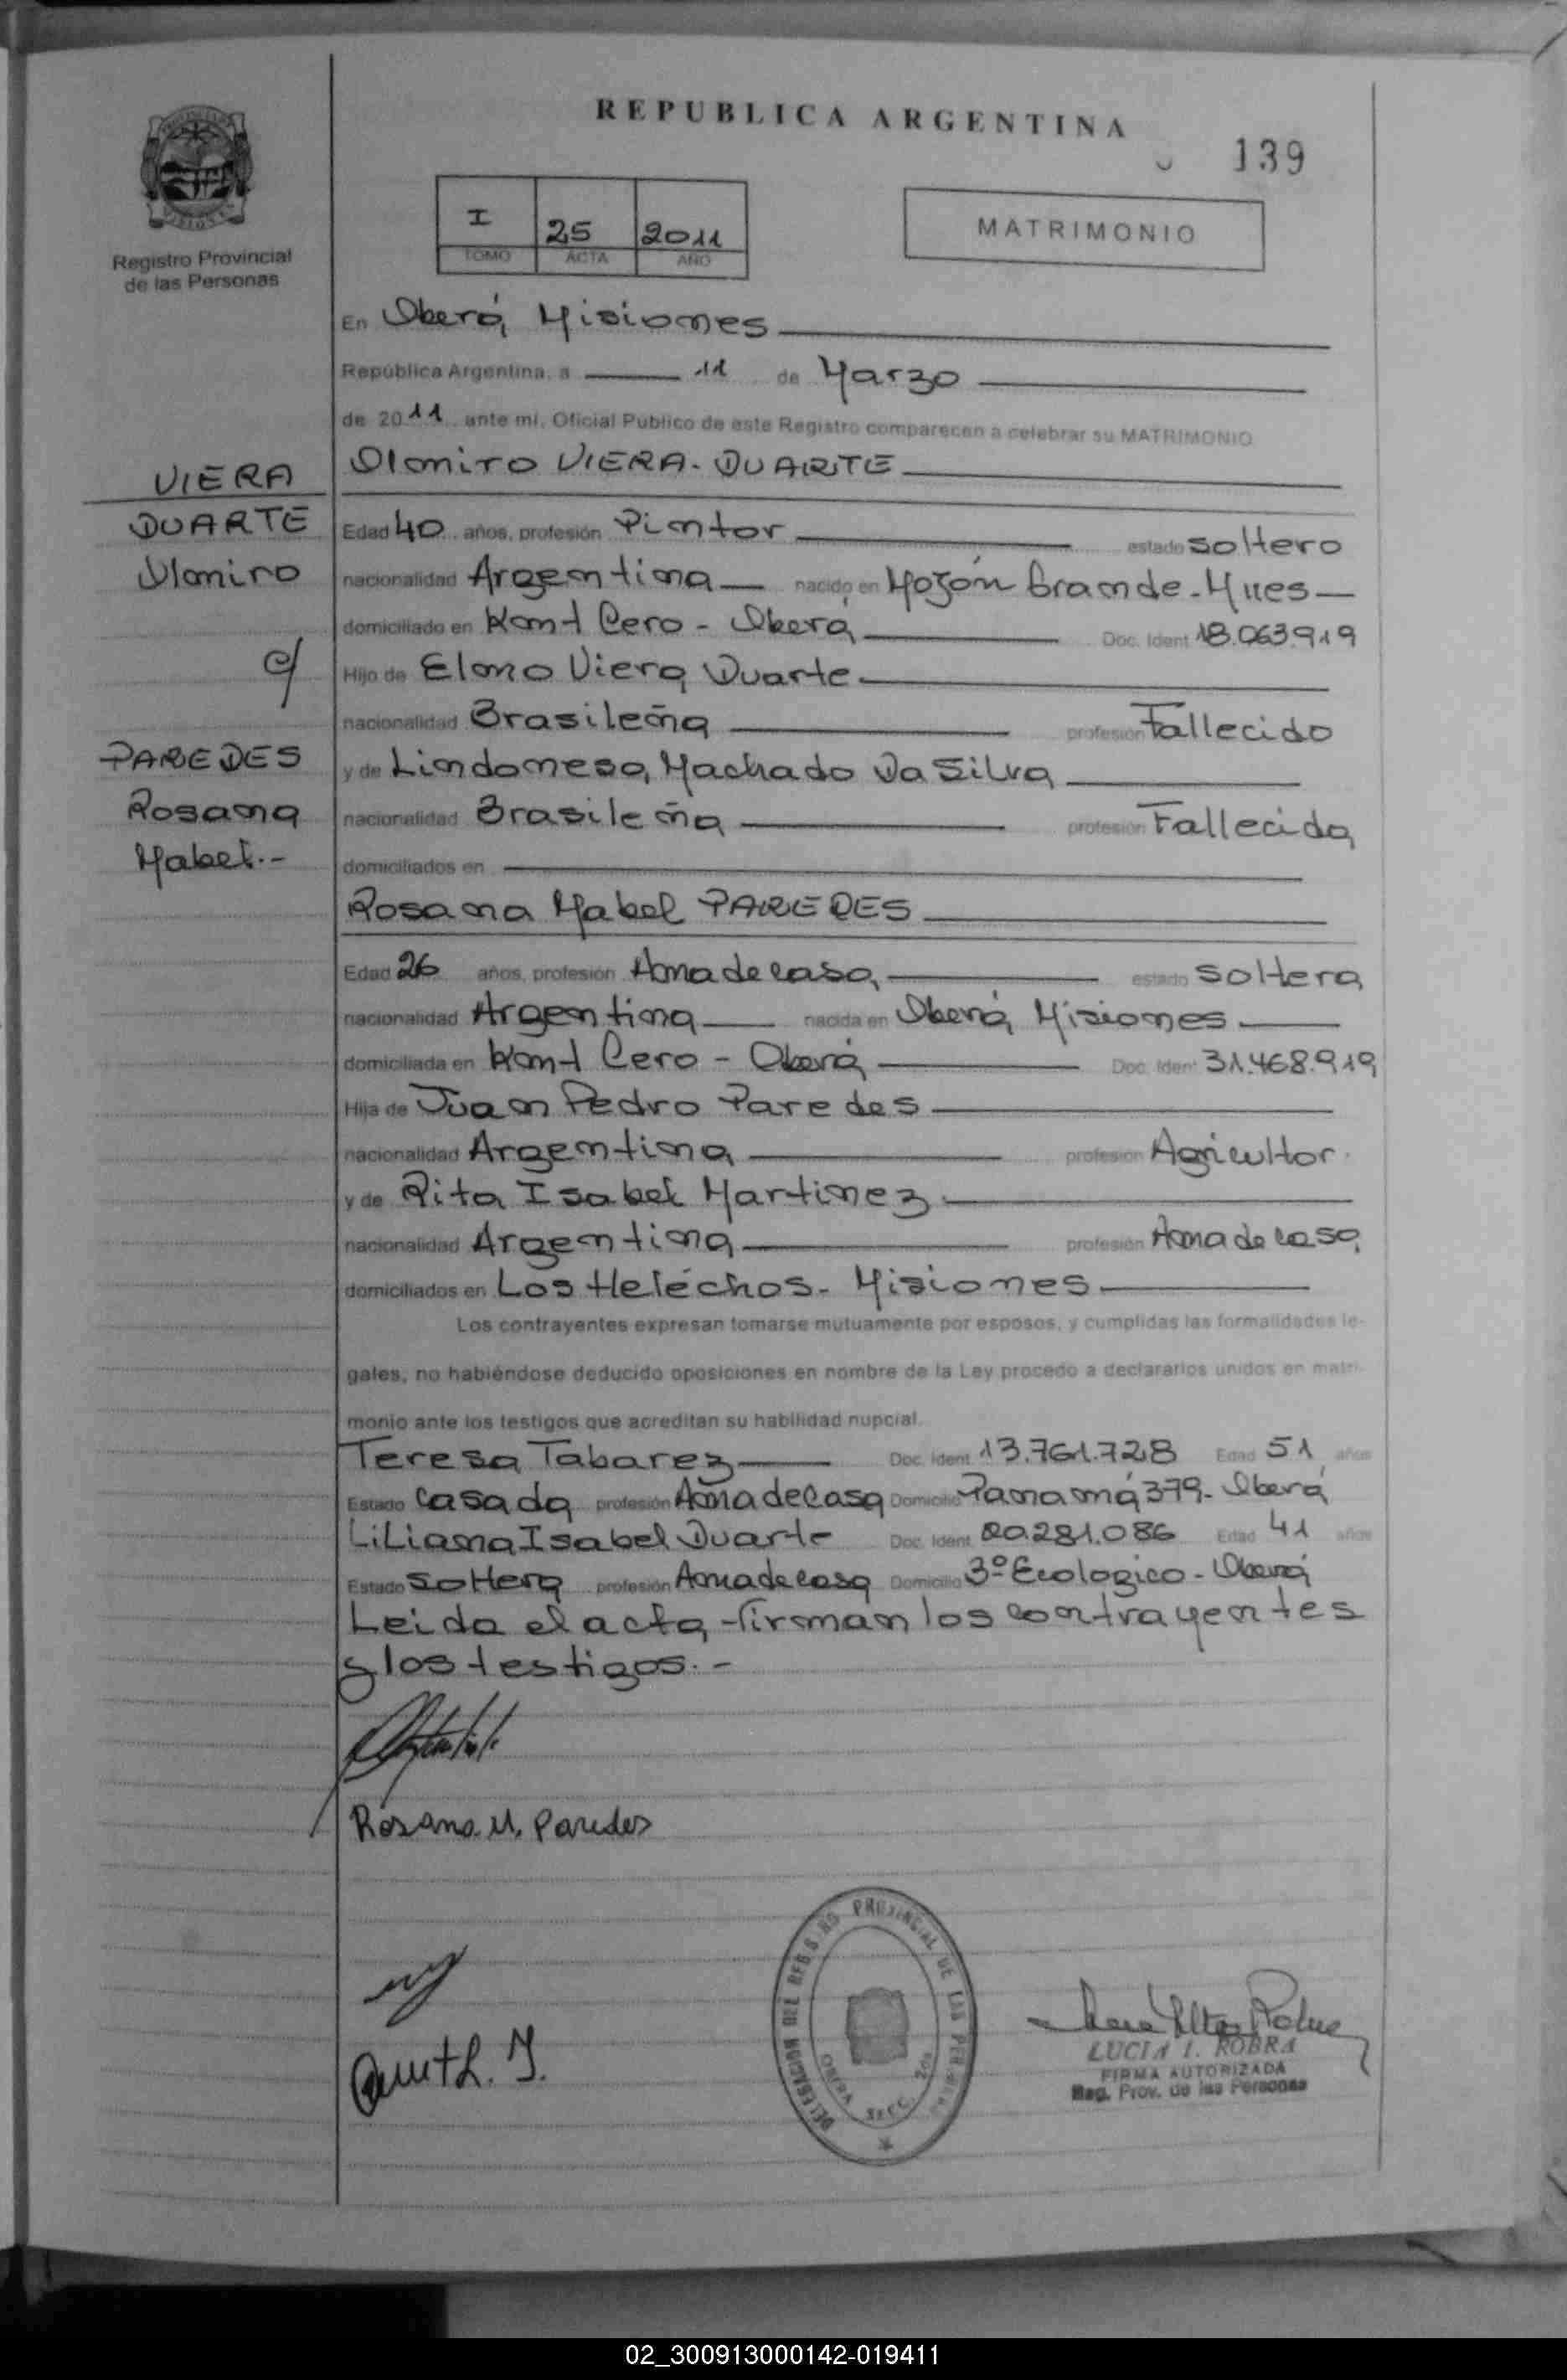 REPUBLICA ARGENTINA
139
Registro Provincial
de las Personas
I 25 2011
TOMO ACTA AÑO
MATRIMONIO
En Oberá, Misiones
República Argentina, a 11 de Marzo
de 2011 ante mí, Oficial Público de este Registro comparecen a celebrar su MATRIMONIO
VIERA
DUARTE
Olmiro
c/
PAREDES
Rosana
Mabel.-
Olmiro VIERA-DUARTE
Edad 40 años, profesión Pintor estado soltero
nacionalidad Argentina nacido en Mojón Grande-Mnes
domiciliado en Km 1 Cero - Oberá Doc. Ident 18.063.919
Hijo de Elmo Viera Duarte
nacionalidad Brasileña profesión Fallecido
y de Lindomesa Machado Da Silva
nacionalidad Brasileña profesión Fallecida
domiciliados en
Rosana Mabel PAREDES
Edad 26 años, profesión Ama de casa estado soltera
nacionalidad Argentina nacida en Oberá, Misiones
domiciliada en Km 1 Cero - Oberá Doc. Ident 31.468.919
Hija de Juan Pedro Paredes
nacionalidad Argentina profesión Agricultor
y de Rita Isabel Martinez
nacionalidad Argentina profesión Ama de casa
domiciliados en Los Heléchos - Misiones
Los contrayentes expresan tomarse mutuamente por esposos, y cumplidas las formalidades le-
gales, no habiéndose deducido oposiciones en nombre de la Ley procedo a declararlos unidos en matri-
monio ante los testigos que acreditan su habilidad nupcial.
Teresa Tabarez Doc. Ident 13.761.728 Edad 51 años
Estado casada profesión Ama de casa Domicilio Panamá 379- Oberá
Liliana Isabel Duarte Doc. Ident 20.281.086 Edad 41 años
Estado soltera profesión Ama de casa Domicilio 3º Ecologico - Oberá
Leida el acta firman los contrayentes
y los testigos.-
Rosana M. Paredes
DELEGACION DEL REGISTRO PROVINCIAL DE LAS PERSONAS
OBERA SECC. 2da
LUCIA I. ROBRA
FIRMA AUTORIZADA
Reg. Prov. de las Personas
02_300913000142-019411